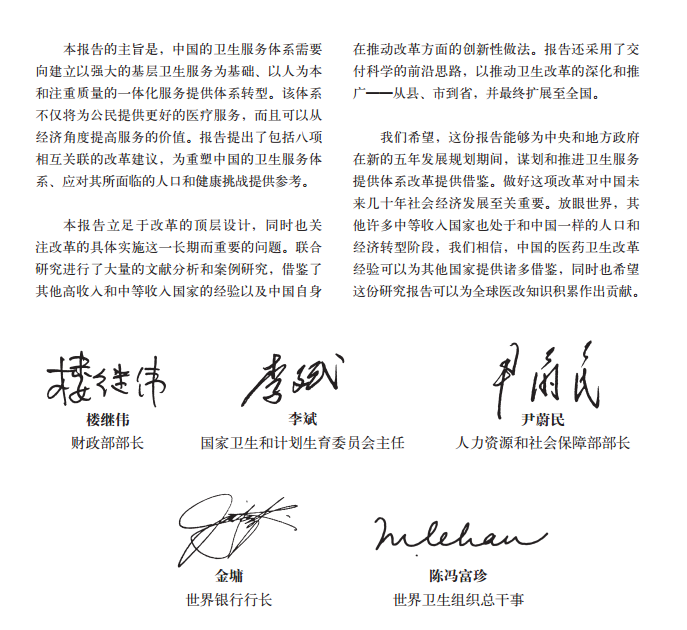 本报告的主旨是，中国的卫生服务体系需要
向建立以强大的基层卫生服务为基础、以人为本
和注重质量的一体化服务提供体系转型。该体系
不仅将为公民提供更好的医疗服务，而且可以从
经济角度提高服务的价值。报告提出了包括八项
相互关联的改革建议，为重塑中国的卫生服务体
系、应对其所面临的人口和健康挑战提供参考。
本报告立足于改革的顶层设计，同时也关
注改革的具体实施这一长期而重要的问题。联合
研究进行了大量的文献分析和案例研究，借鉴了
其他高收入和中等收入国家的经验以及中国自身
在推动改革方面的创新性做法。报告还采用了交
付科学的前沿思路，以推动卫生改革的深化和推
广——从县、市到省，并最终扩展至全国。
我们希望，这份报告能够为中央和地方政府
在新的五年发展规划期间，谋划和推进卫生服务
提供体系改革提供借鉴。做好这项改革对中国未
来几十年社会经济发展至关重要。放眼世界，其
他许多中等收入国家也处于和中国一样的人口和
经济转型阶段，我们相信，中国的医药卫生改革
经验可以为其他国家提供诸多借鉴，同时也希望
这份研究报告可以为全球医改知识积累作出贡献。
楼继伟 李斌 尹蔚民
楼继伟 李斌 尹蔚民
财政部部长 国家卫生和计划生育委员会主任 人力资源和社会保障部部长
金墉 陈冯富珍
世界银行行长 世界卫生组织总干事